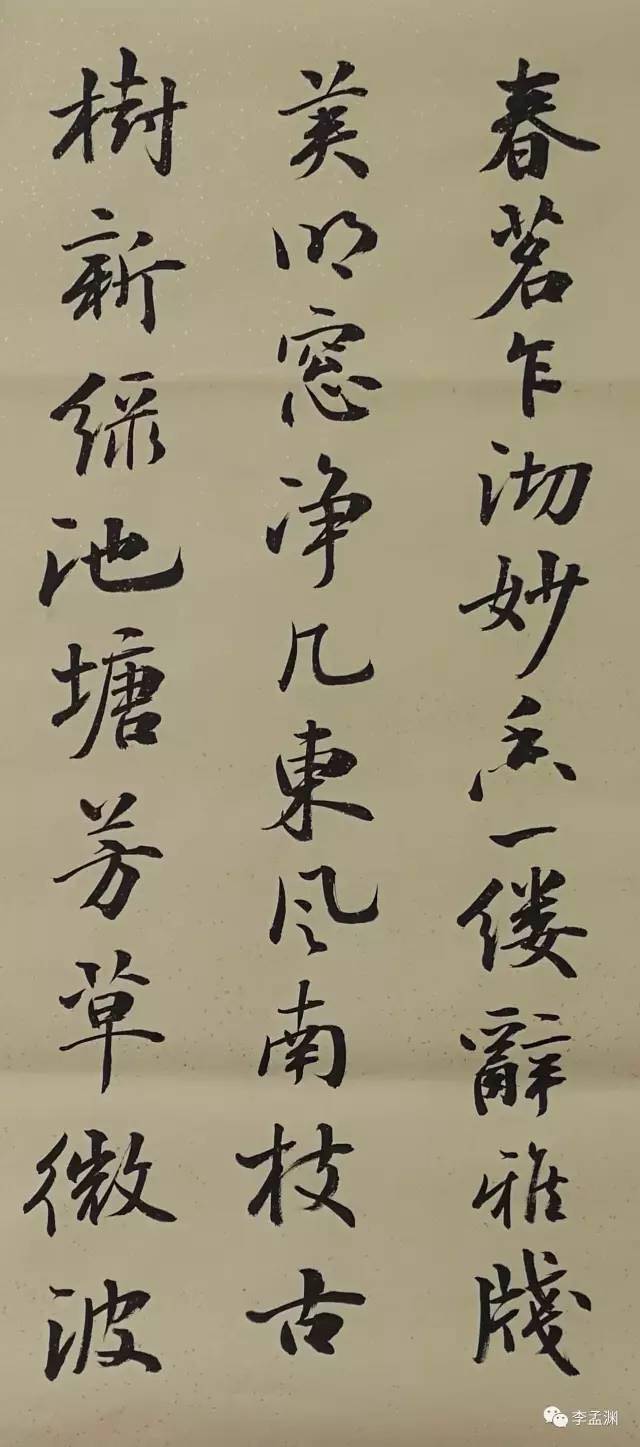 春茗乍沏妙香一缕辭雅牋
美明窓净几東风南枝古
樹新绿池塘芳草微波
李孟渊